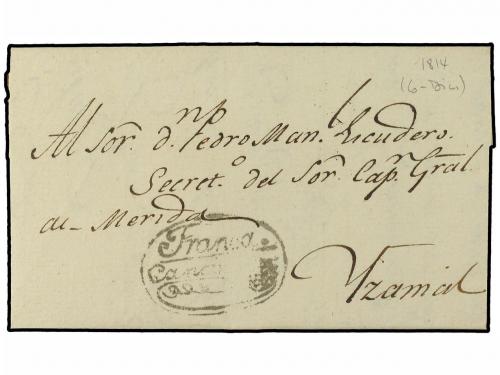 1814
(6-Dic)
Al Sor. d.n Pedro Man. Escudero.
Secret.o del Sor. Cap.n Gral.
de Merida
Franca
Yzamal